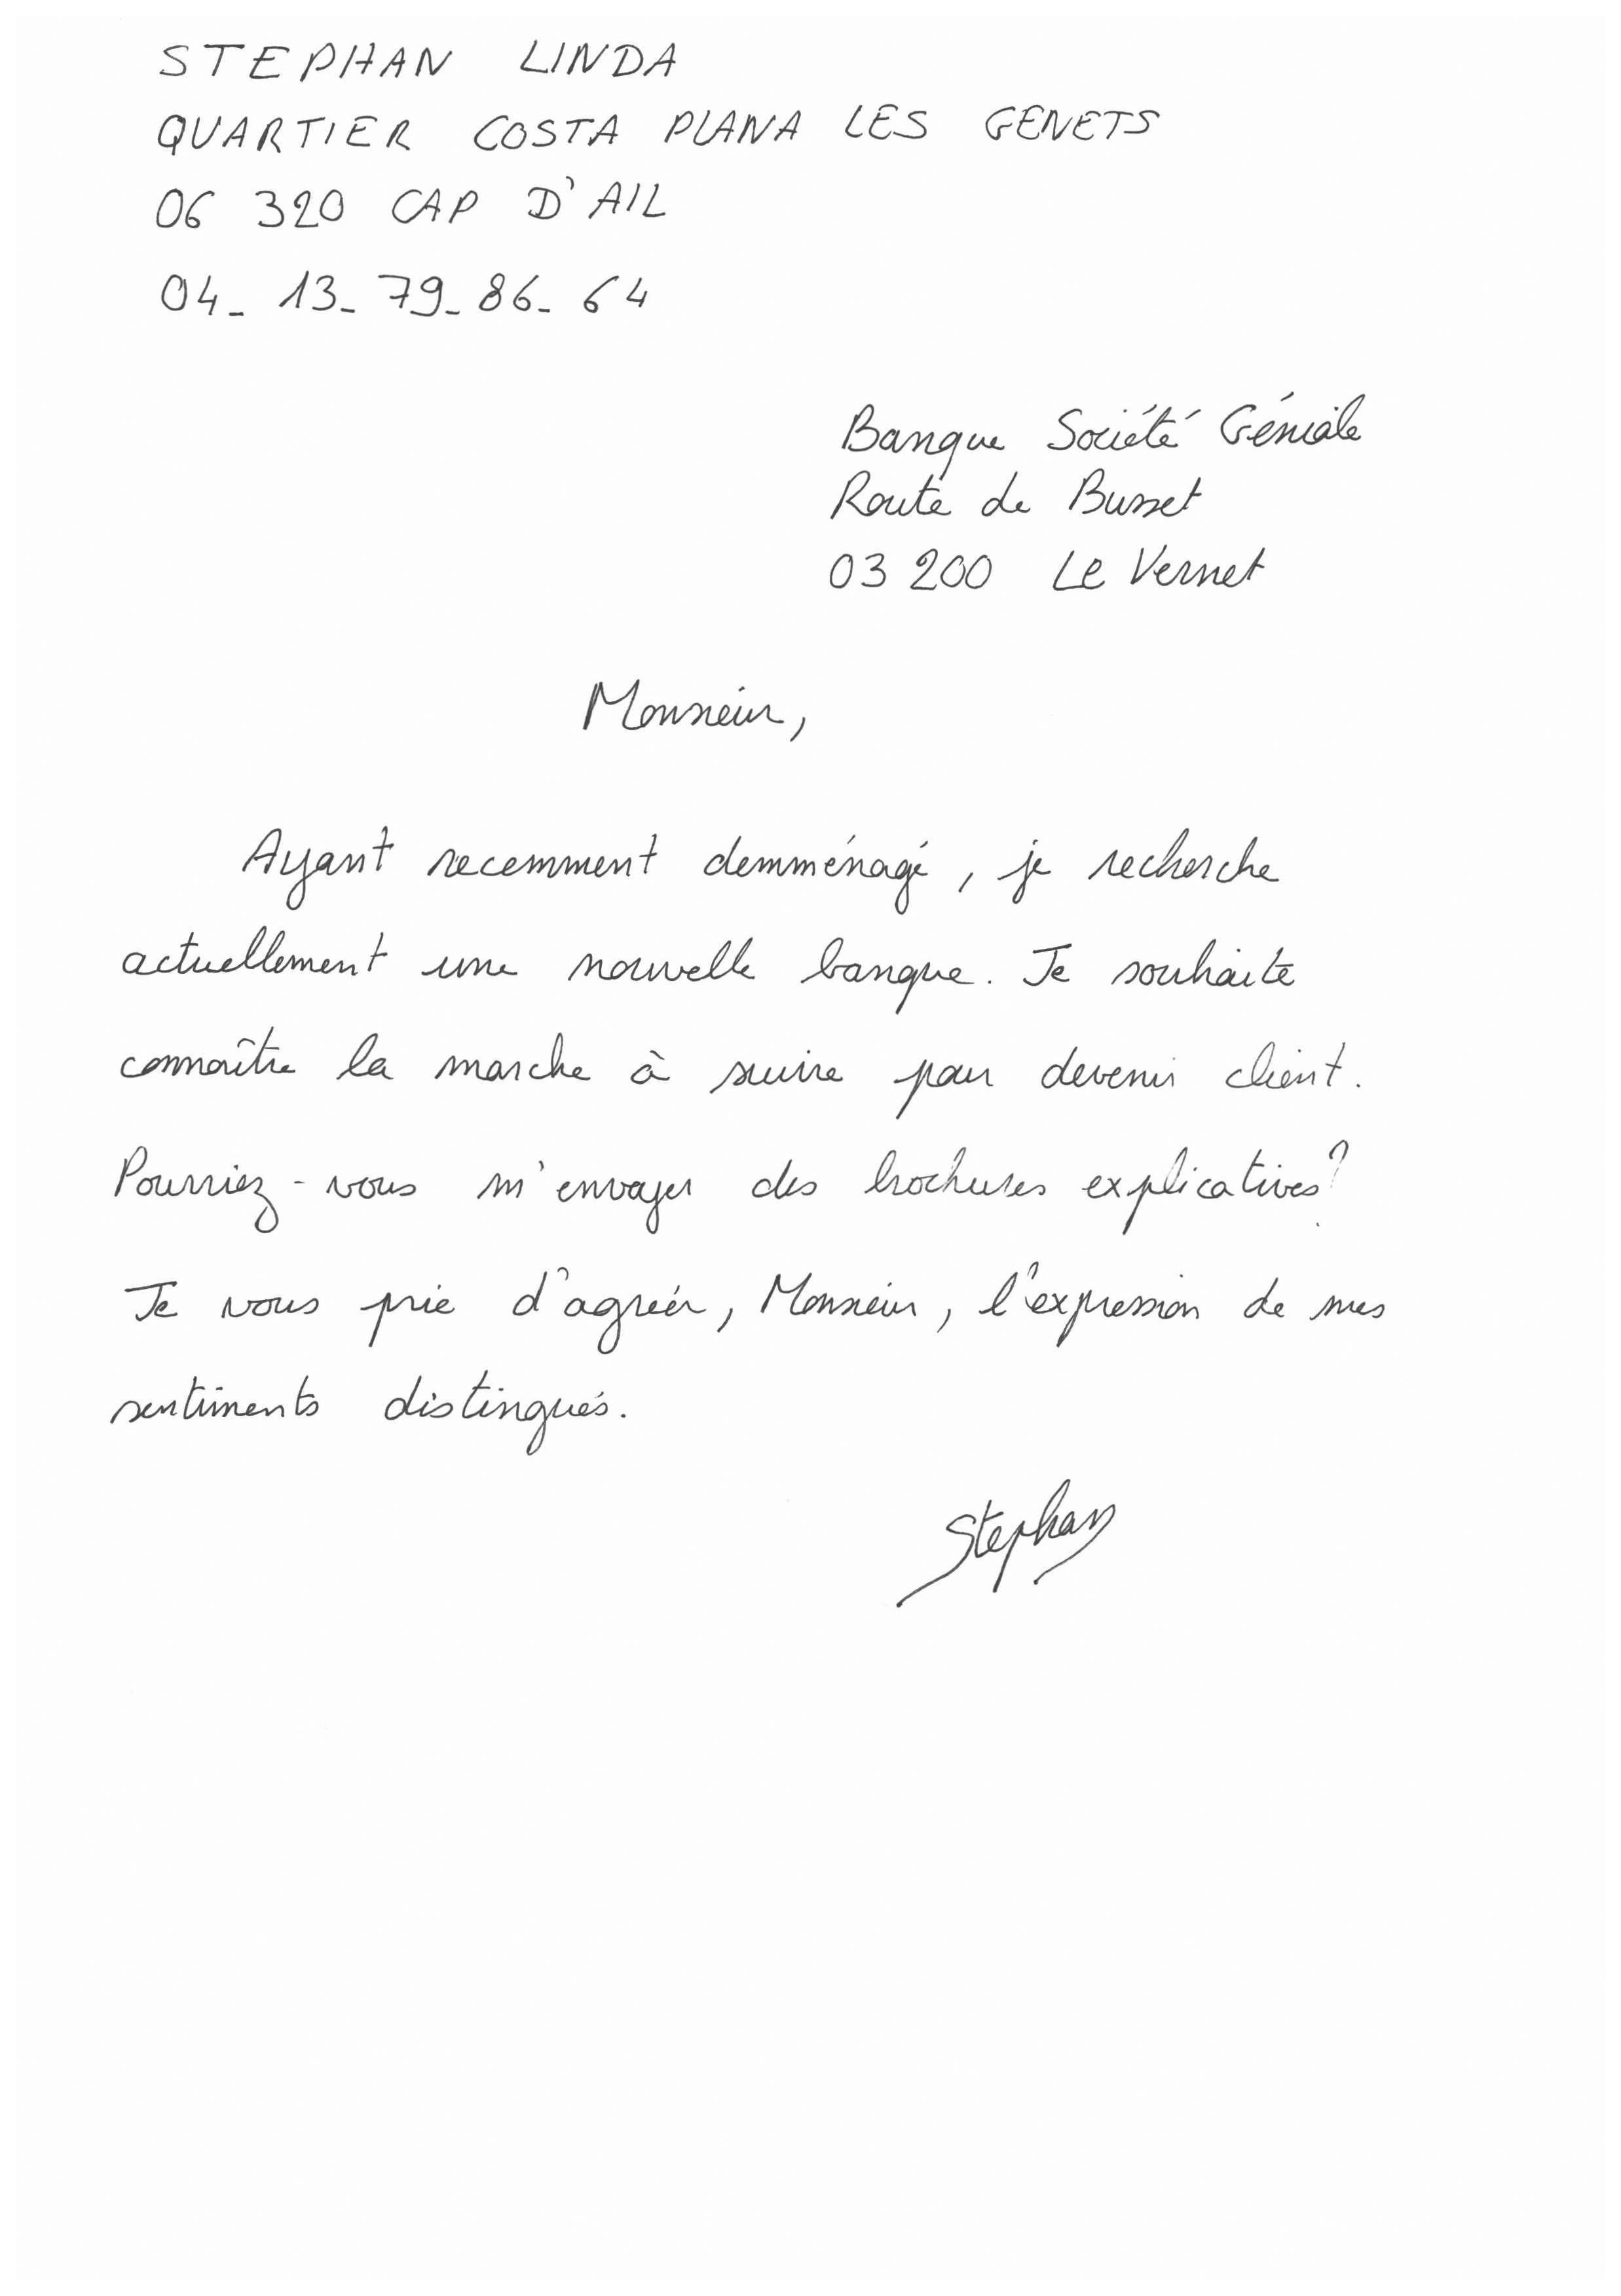 STEPHAN LINDA
QUARTIER COSTA PLANA LES GENETS
06 320 CAP D'AIL
04_ 13_ 79_ 86_ 64
Banque Société Géniale
Route de Busset
03 200 Le Vernet
Monsieur,
Ayant recemment demménagé, je recherche
actuellement une nouvelle banque. Je souhaite
connaître la marche à suivre pour devenir client.
Pourriez-vous m'envoyer des brochures explicatives?
Je vous prie d'agréer, Monsieur, l'expression de mes
sentiments distingués.
Stephan